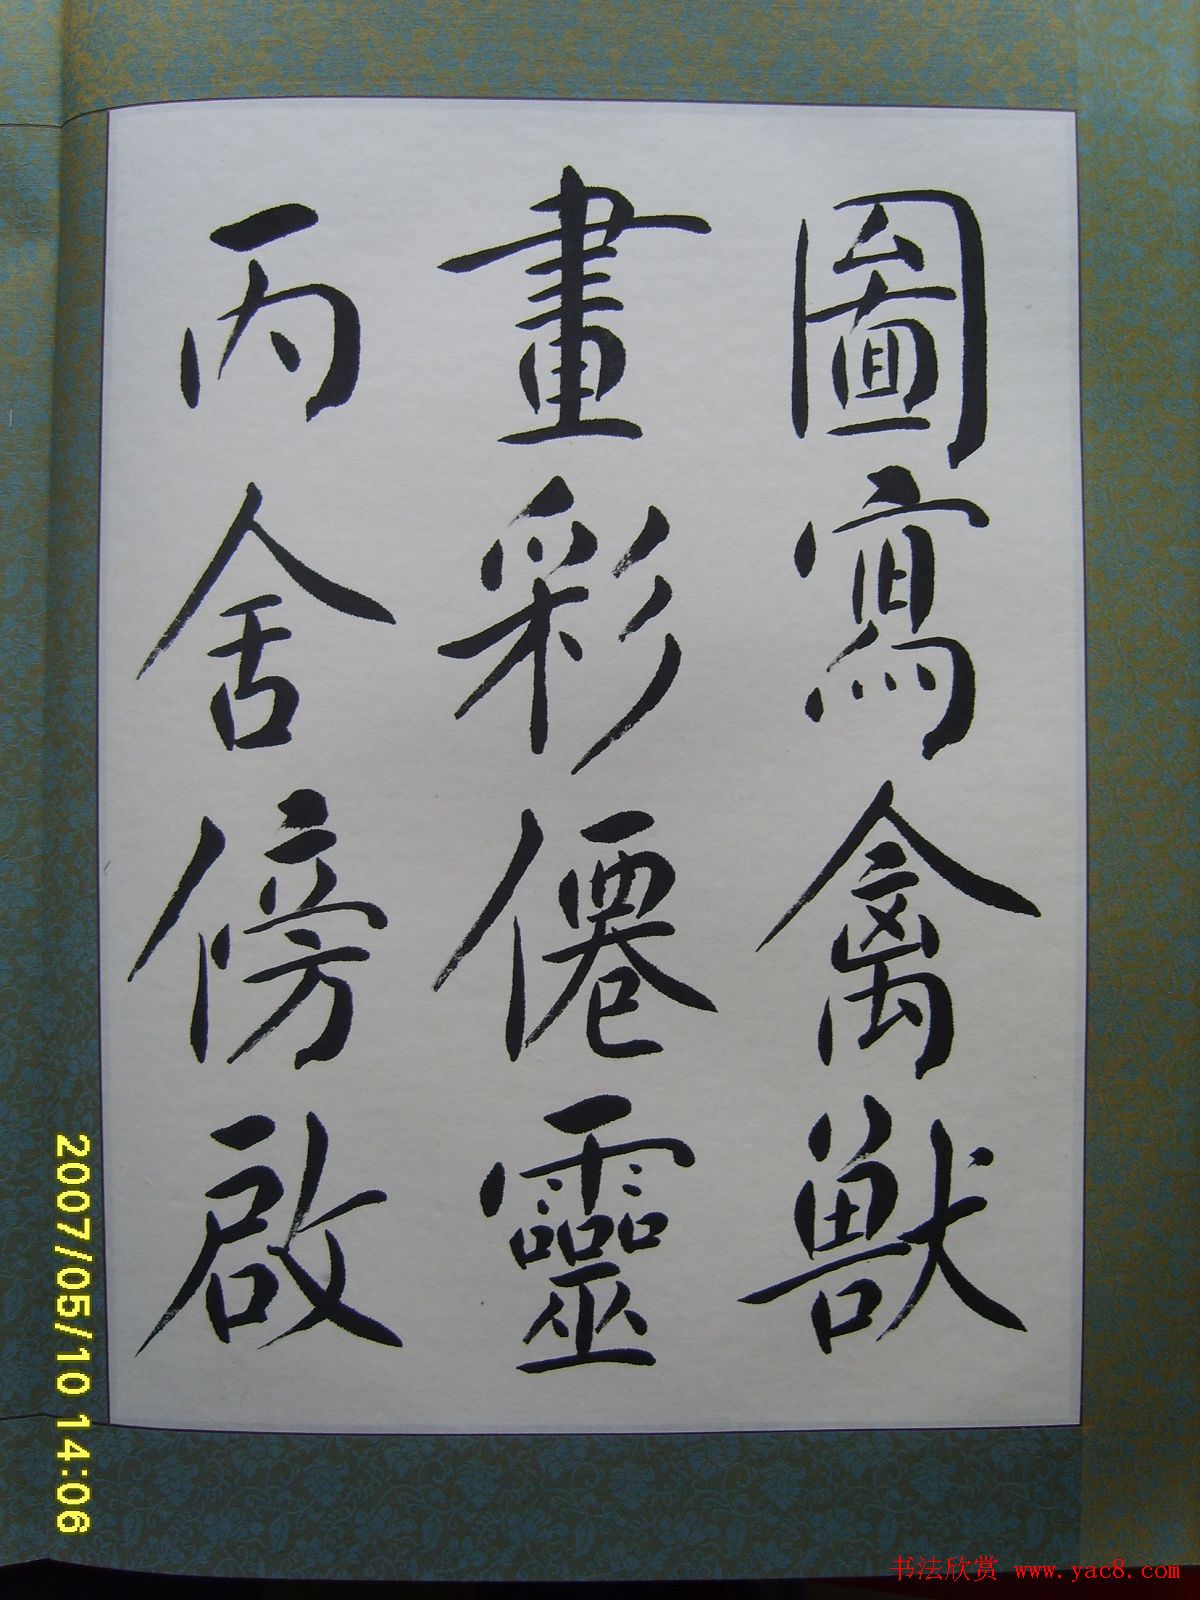 圖寫禽獸
畫彩僊靈
丙舍傍啟
2007/05/10 14:06
书法欣赏 www.yac8.com